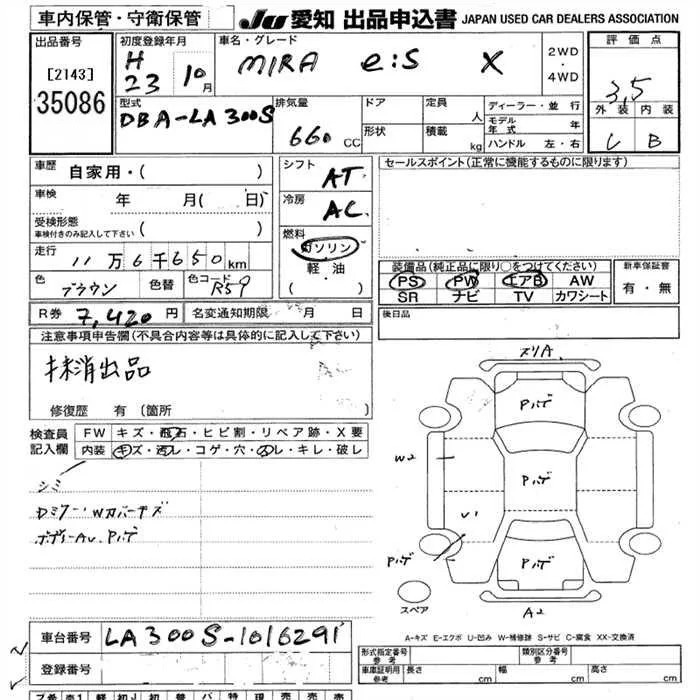 車内保管・守衛保管 JU 愛知 出品申込書 JAPAN USED CAR DEALERS ASSOCIATION
出品番号 [2143] 35086
初度登録年月 H 23 10月
車名・グレード MIRA e:S X
2WD・4WD
評価点 3,5
外装 内装 B
型式 DBA-LA300S
排気量 660 CC
ドア 形状
定員 人 積載 kg
ディーラー・並行
モデル年式 年
ハンドル 左・右
車歴 自家用・( )
車検 年 月( 日)
受検形態 車検付きのみ記入して下さい ( )
走行 11万6千650km
色 ブラウン 色替 色コード R59
シフト AT
冷房 AC
燃料 ガソリン・軽油 ( ・ )
セールスポイント(正常に機能するものに限ります)
装備品(純正品に限り○をつけてください)
PS PW エアB AW
SR ナビ TV カワシート
新車保証書 有・無
後日品
R券 7,420円 名変通知期限 月 日
注意事項申告欄(不具合内容等は具体的に記入して下さい)
抹消出品
修復歴 有(箇所 )
検査員記入欄
FW キズ・飛石・ヒビ割・リペア跡・X要
内装 キズ・汚レ・コゲ・穴・スレ・キレ・破レ
シミ
Dミラー・Wカバーキズ
ボディーAU.Pハゲ
スリA.
Pハゲ
W2
Pハゲ
U1
Pハゲ
Pハゲ
A2
スペア
A-キズ E-エクボ U-凹み W-補修跡 S-サビ C-腐食 XX-交換済
車台番号 LA300S-1016291
登録番号
形式指定番号 参考
類別区分番号 参考
車庫証明用 参考 長さ cm 幅 cm 高さ cm